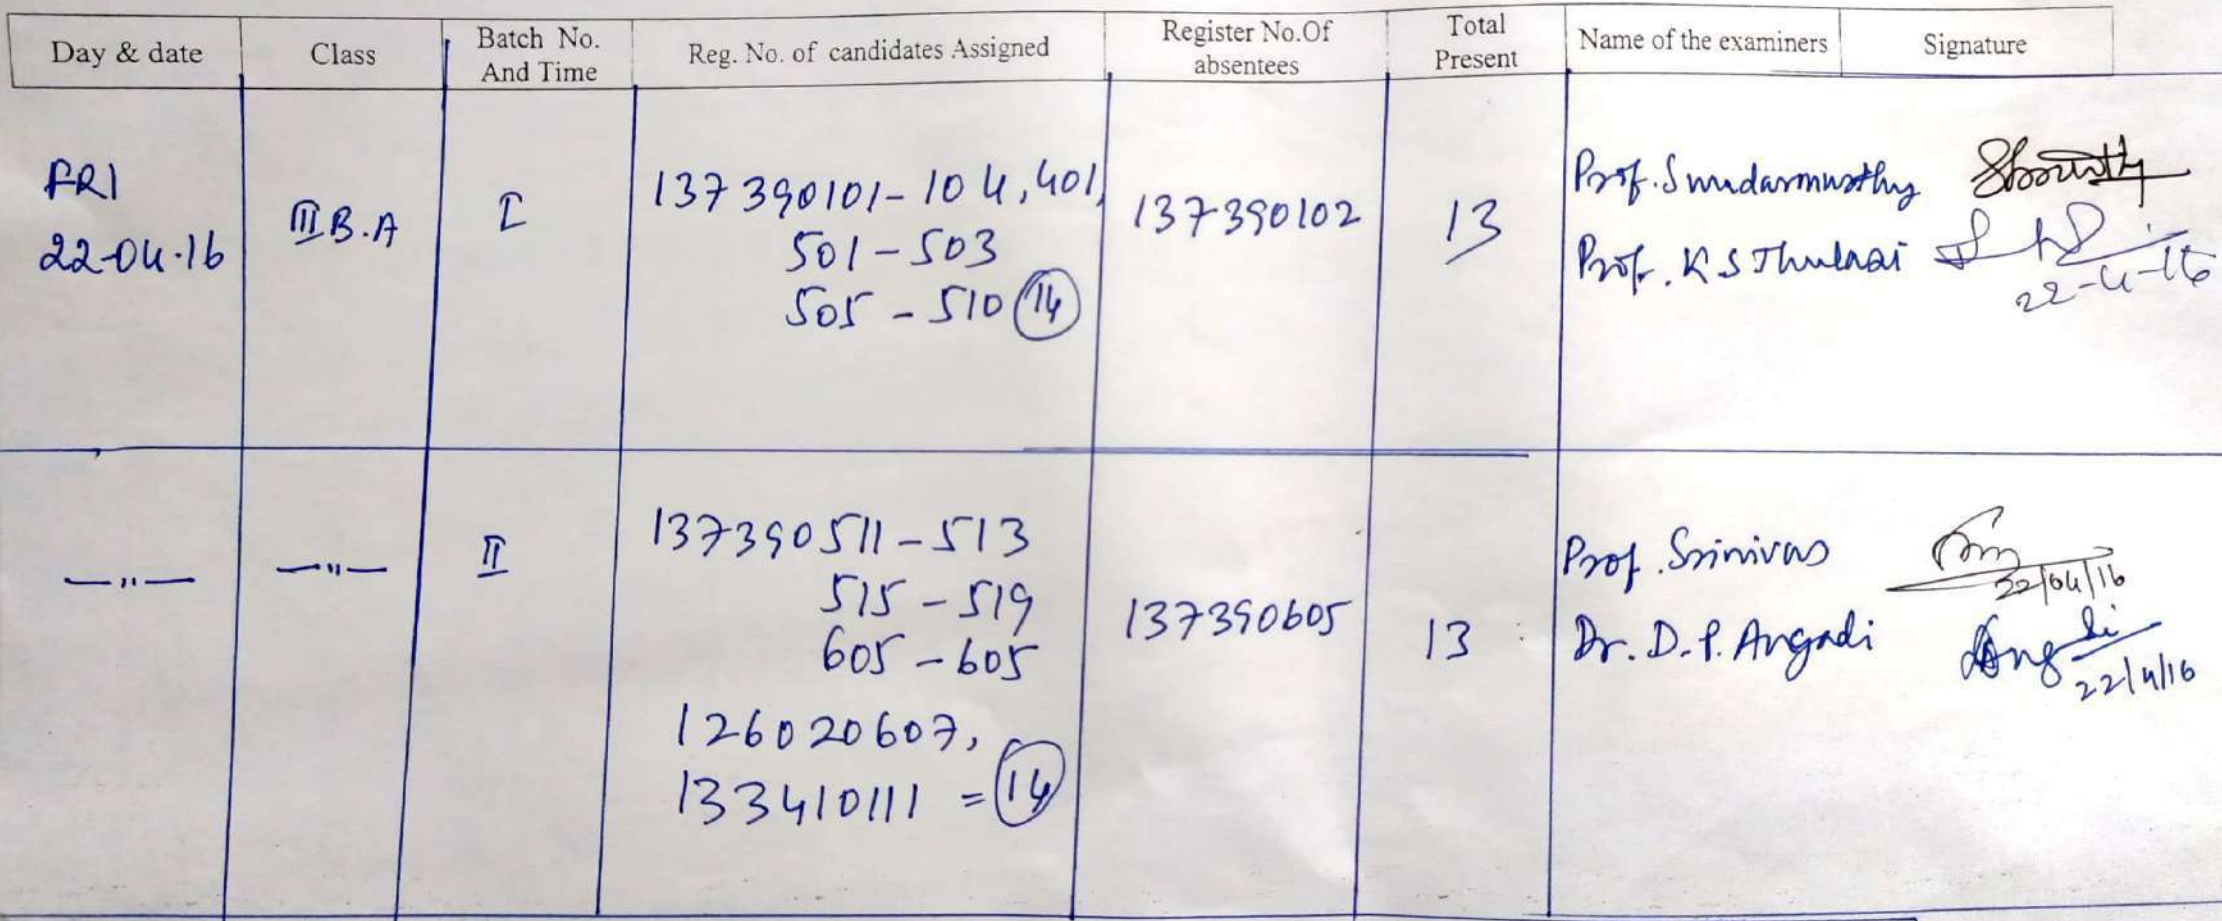 Day & date Class Batch No. And Time Reg. No. of candidates Assigned Register No.Of absentees Total Present Name of the examiners Signature
FRI
22-04-16
III B.A
I
137390101-104,401,
501-503
505-510 (14)
137390102
13
Prof. Sundarmurthy
Prof. K S Thulasi
22-4-16
—"—
—"—
II
137390511-513
515-519
605-605
126020607,
133410111 = (14)
137390605
13
Prof. Srinivas
22/04/16
Dr. D.P. Angadi
22/4/16